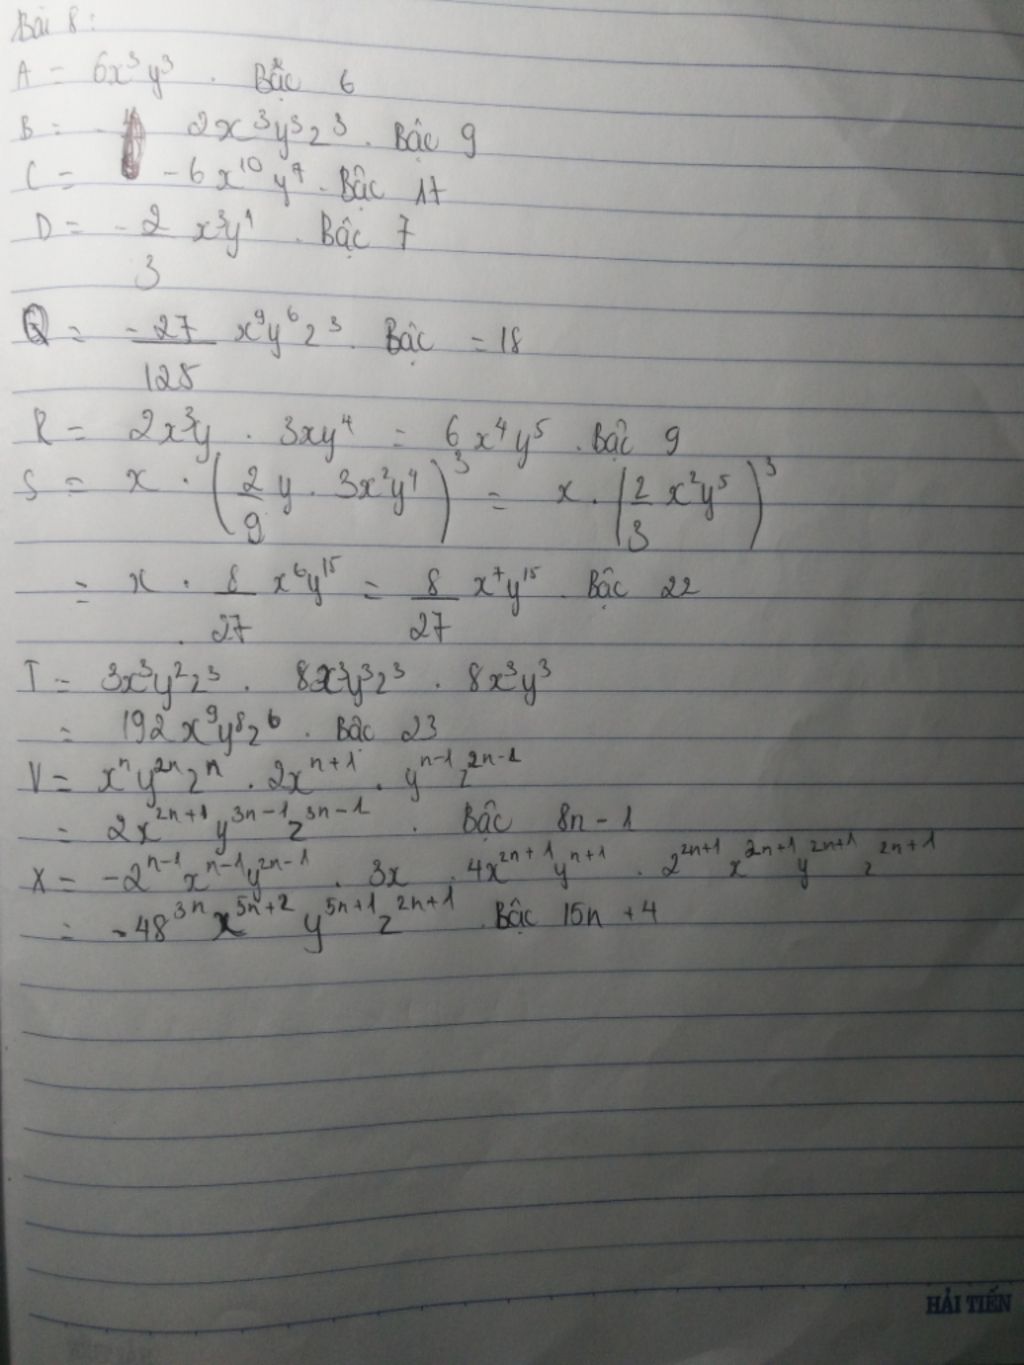 Bài 8:
A = 6x³y³ . Bậc 6
B = - 2x³y³z³ . Bậc 9
C = -6x¹⁰y⁷ . Bậc 17
D = -2/3 x³y⁴ . Bậc 7
Q = -27/125 x⁹y⁶z³ . Bậc = 18
R = 2x³y . 3xy⁴ = 6x⁴y⁵ . Bậc 9
S = x . (2/9 y . 3x²y⁴)³ = x . (2/3 x²y⁵)³
= x . 8/27 x⁶y¹⁵ = 8/27 x⁷y¹⁵ . Bậc 22
T = 3x³y²z³ . 8x³y³z³ . 8x³y³
= 192x⁹y⁸z⁶ . Bậc 23
V = xⁿy²ⁿzⁿ . 2xⁿ⁺¹ . yⁿ⁻¹z²ⁿ⁻¹
= 2x²ⁿ⁺¹y³ⁿ⁻¹z³ⁿ⁻¹ . Bậc 8n - 1
X = -2ⁿ⁻¹xⁿ⁻¹y²ⁿ⁻¹ . 3x . 4x²ⁿ⁺¹yⁿ⁺¹ . 2²ⁿ⁺¹x²ⁿ⁺¹y²ⁿ⁺¹z²ⁿ⁺¹
= -48³ⁿx⁵ⁿ⁺²y⁵ⁿ⁺¹z²ⁿ⁺¹ Bậc 15n + 4
HẢI TIẾN